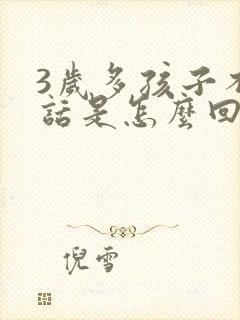 3歲多孩子不
話是怎麼回
倪雪